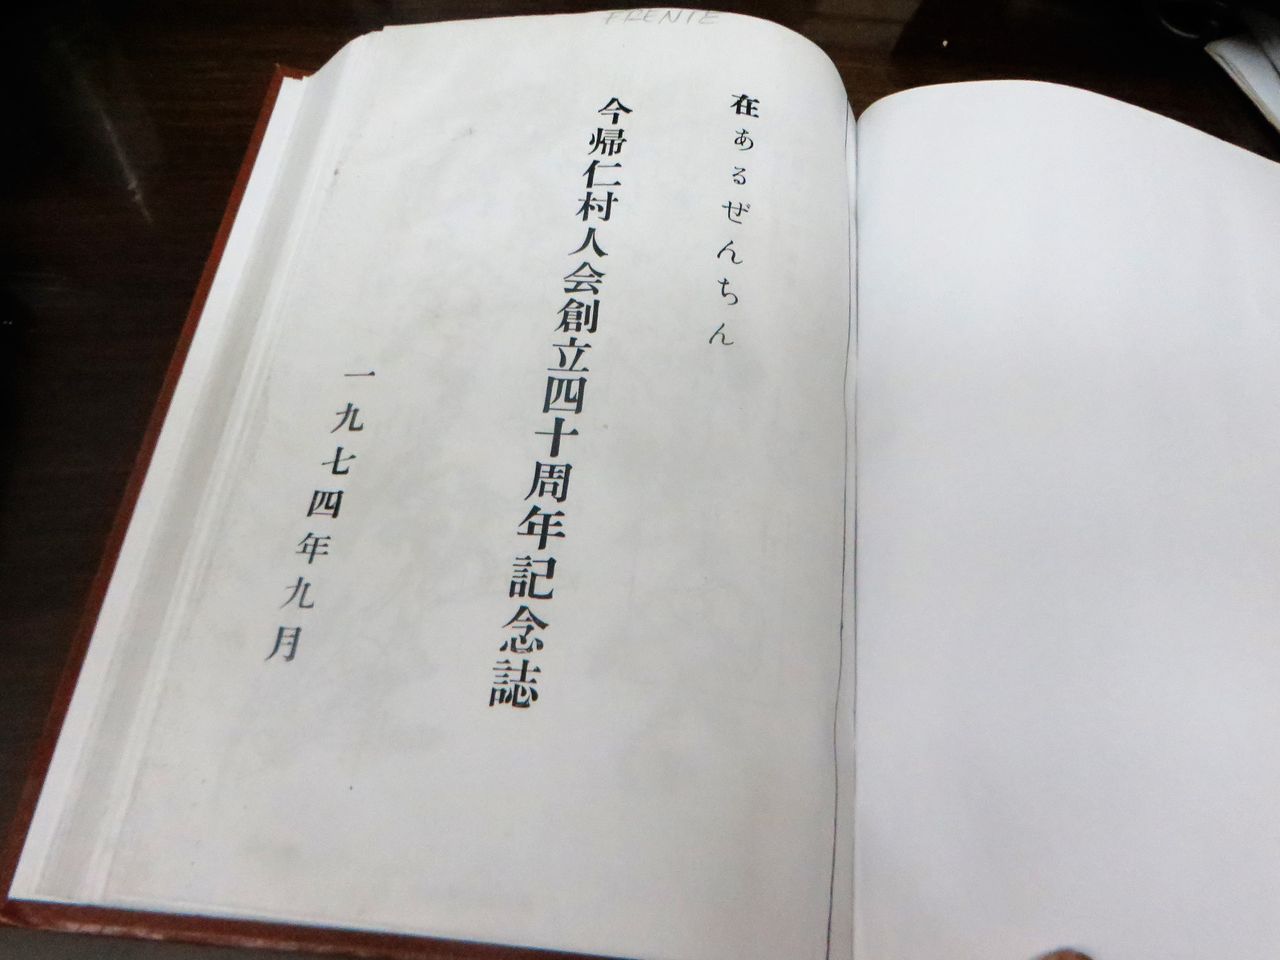 FRENTE
在あるぜんちん
今帰仁村人会創立四十周年記念誌
一九七四年九月